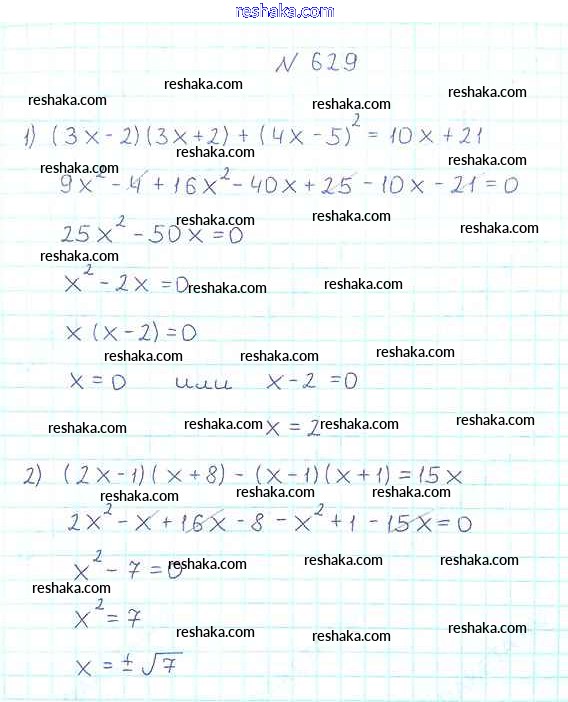 reshaka.com
N 629
reshaka.com reshaka.com reshaka.com reshaka.com
1) (3x-2)(3x+2) + (4x-5)² = 10x + 21
reshaka.com reshaka.com reshaka.com
9x² - 4 + 16x² - 40x + 25 - 10x - 21 = 0
reshaka.com reshaka.com reshaka.com
25x² - 50x = 0
reshaka.com
x² - 2x = 0
reshaka.com reshaka.com
x (x-2) = 0
reshaka.com reshaka.com reshaka.com
x = 0 или x - 2 = 0
reshaka.com reshaka.com reshaka.com reshaka.com
x = 2
2) (2x-1)(x+8) - (x-1)(x+1) = 15x
reshaka.com reshaka.com reshaka.com
2x² - x + 16x - 8 - x² + 1 - 15x = 0
reshaka.com reshaka.com reshaka.com
x² - 7 = 0
reshaka.com
x² = 7
reshaka.com reshaka.com reshaka.com
x = ± √7